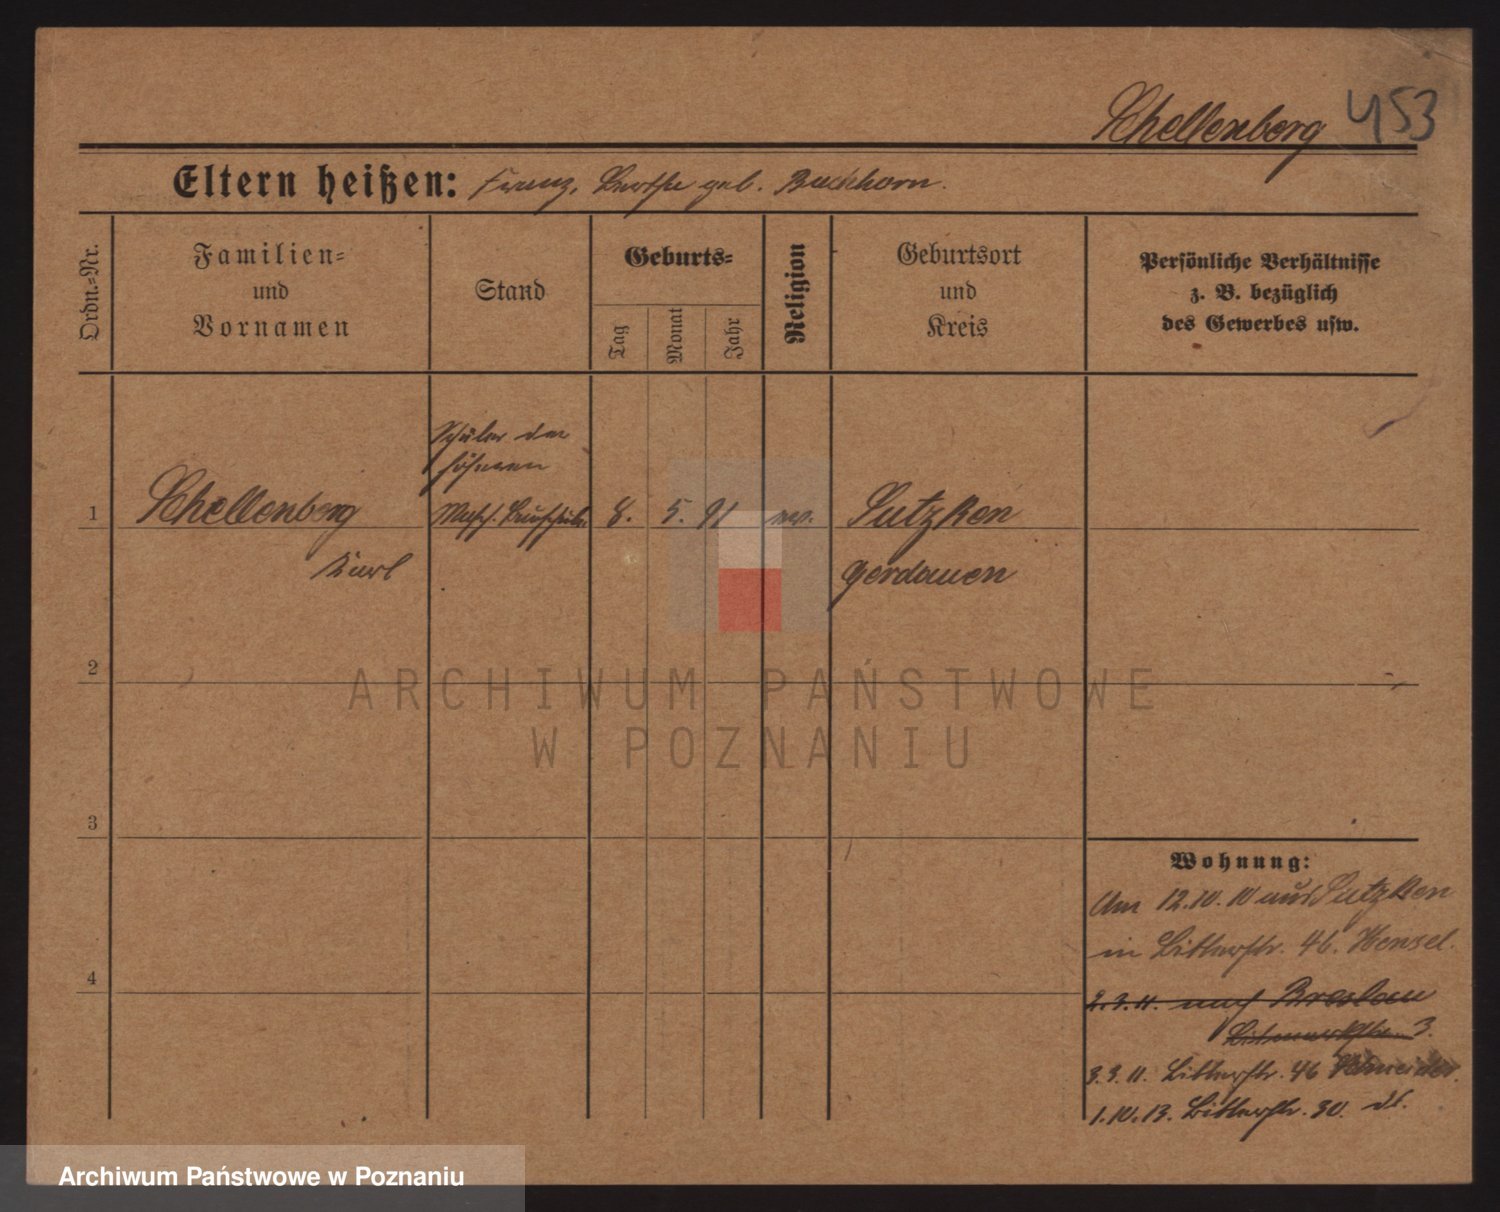 Schellenberg 453
Eltern heißen: Franz, Berthe geb. Buchhorn.
Ordn.-Nr.
Familien-
und
Vornamen
Stand
Geburts-
Tag
Monat
Jahr
Religion
Geburtsort
und
Kreis
Persönliche Verhältnisse
z. B. bezüglich
des Gewerbes usw.
Schüler der
höheren
1 Schellenberg Masch. Bauschule 8. 5. 91 ev. Sutzken
Karl Gerdauen
2
3
4
Wohnung:
Am 12.10.10 aus Sutzken
in Bitterstr. 46. Hensel.
2.3.11. nach Breslau
3.
3.3.11. Bitterstr. 46 Schneider.
1.10.13. Bitterstr. 30. dt.
ARCHIWUM PAŃSTWOWE
W POZNANIU
Archiwum Państwowe w Poznaniu